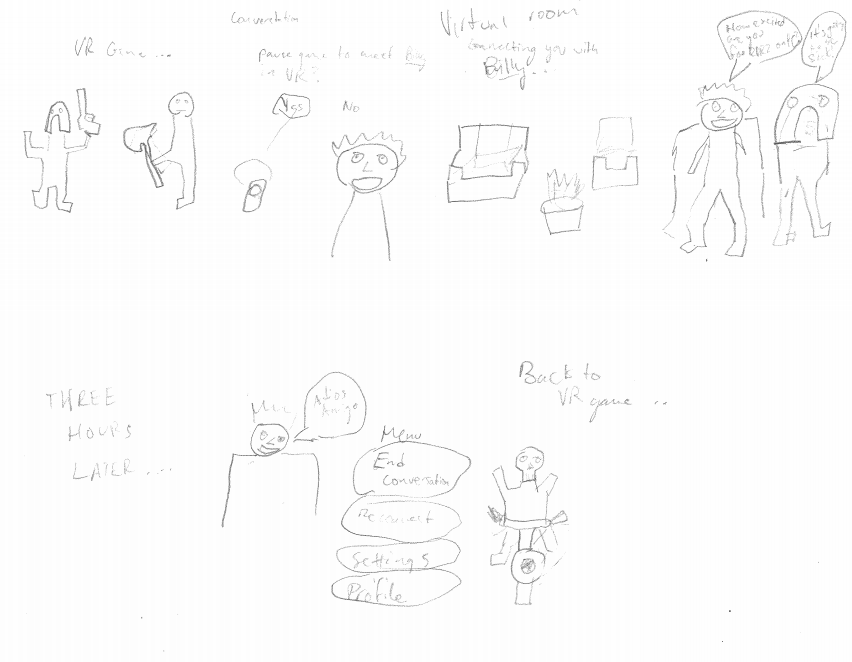 VR Game...
Conversation
pause game to meet Billy
in VR?
Yes
No
Virtual room
Connecting you with
Billy...
How excited
are you
for out?
It's going
to be
sick
THREE
HOURS
LATER....
Adios
Amigo
Menu
End
Conversation
Reconnect
Settings
Profile
Back to
VR game...